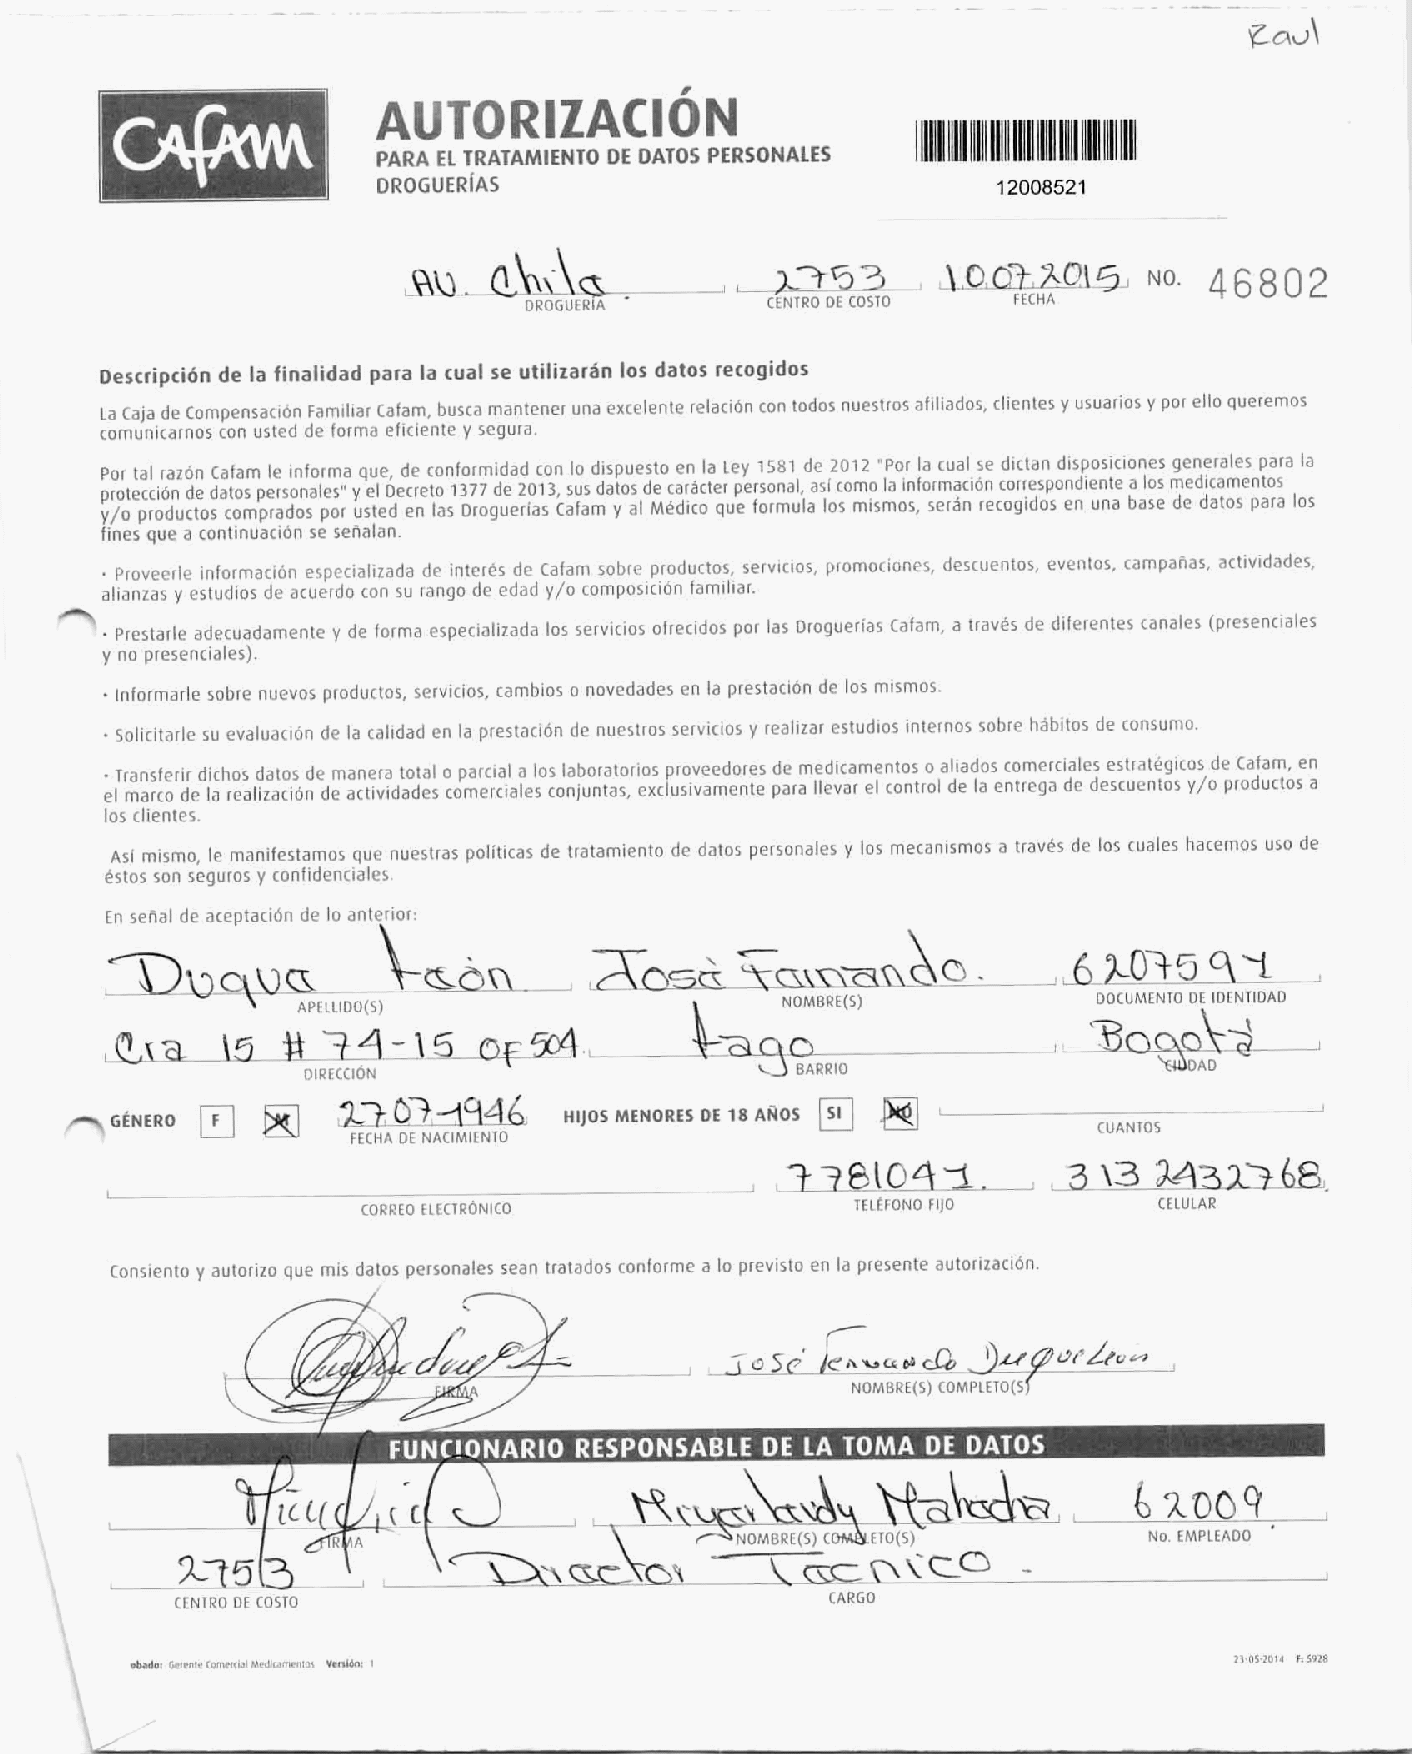 Raul
CAFAM
AUTORIZACIÓN
PARA EL TRATAMIENTO DE DATOS PERSONALES
DROGUERÍAS
12008521
AV. Chile. 2753 10.07.2015 NO. 46802
DROGUERÍA CENTRO DE COSTO FECHA
Descripción de la finalidad para la cual se utilizarán los datos recogidos
La Caja de Compensación Familiar Cafam, busca mantener una excelente relación con todos nuestros afiliados, clientes y usuarios y por ello queremos
comunicarnos con usted de forma eficiente y segura.
Por tal razón Cafam le informa que, de conformidad con lo dispuesto en la Ley 1581 de 2012 "Por la cual se dictan disposiciones generales para la
protección de datos personales" y el Decreto 1377 de 2013, sus datos de carácter personal, así como la información correspondiente a los medicamentos
y/o productos comprados por usted en las Droguerías Cafam y al Médico que formula los mismos, serán recogidos en una base de datos para los
fines que a continuación se señalan.
· Proveerle información especializada de interés de Cafam sobre productos, servicios, promociones, descuentos, eventos, campañas, actividades,
alianzas y estudios de acuerdo con su rango de edad y/o composición familiar.
· Prestarle adecuadamente y de forma especializada los servicios ofrecidos por las Droguerías Cafam, a través de diferentes canales (presenciales
y no presenciales).
· Informarle sobre nuevos productos, servicios, cambios o novedades en la prestación de los mismos.
· Solicitarle su evaluación de la calidad en la prestación de nuestros servicios y realizar estudios internos sobre hábitos de consumo.
· Transferir dichos datos de manera total o parcial a los laboratorios proveedores de medicamentos o aliados comerciales estratégicos de Cafam, en
el marco de la realización de actividades comerciales conjuntas, exclusivamente para llevar el control de la entrega de descuentos y/o productos a
los clientes.
Así mismo, le manifestamos que nuestras políticas de tratamiento de datos personales y los mecanismos a través de los cuales hacemos uso de
éstos son seguros y confidenciales.
En señal de aceptación de lo anterior:
Duque León José Fernando. 6207591
APELLIDO(S) NOMBRE(S) DOCUMENTO DE IDENTIDAD
Cra 15 # 74-15 OF 504. Lago Bogotá
DIRECCIÓN BARRIO CIUDAD
GÉNERO F M 27.07-1946 HIJOS MENORES DE 18 AÑOS SI NO
FECHA DE NACIMIENTO CUANTOS
7781041. 313 2432768
CORREO ELECTRÓNICO TELÉFONO FIJO CELULAR
Consiento y autorizo que mis datos personales sean tratados conforme a lo previsto en la presente autorización.
José Fernando Duque Leon
FIRMA NOMBRE(S) COMPLETO(S)
FUNCIONARIO RESPONSABLE DE LA TOMA DE DATOS
62009
FIRMA NOMBRE(S) COMPLETO(S) No. EMPLEADO
2753 Director Tecnico.
CENTRO DE COSTO CARGO
obado: Gerente Comercial Medicamentos Versión: 1 23-05-2014 F: 5928